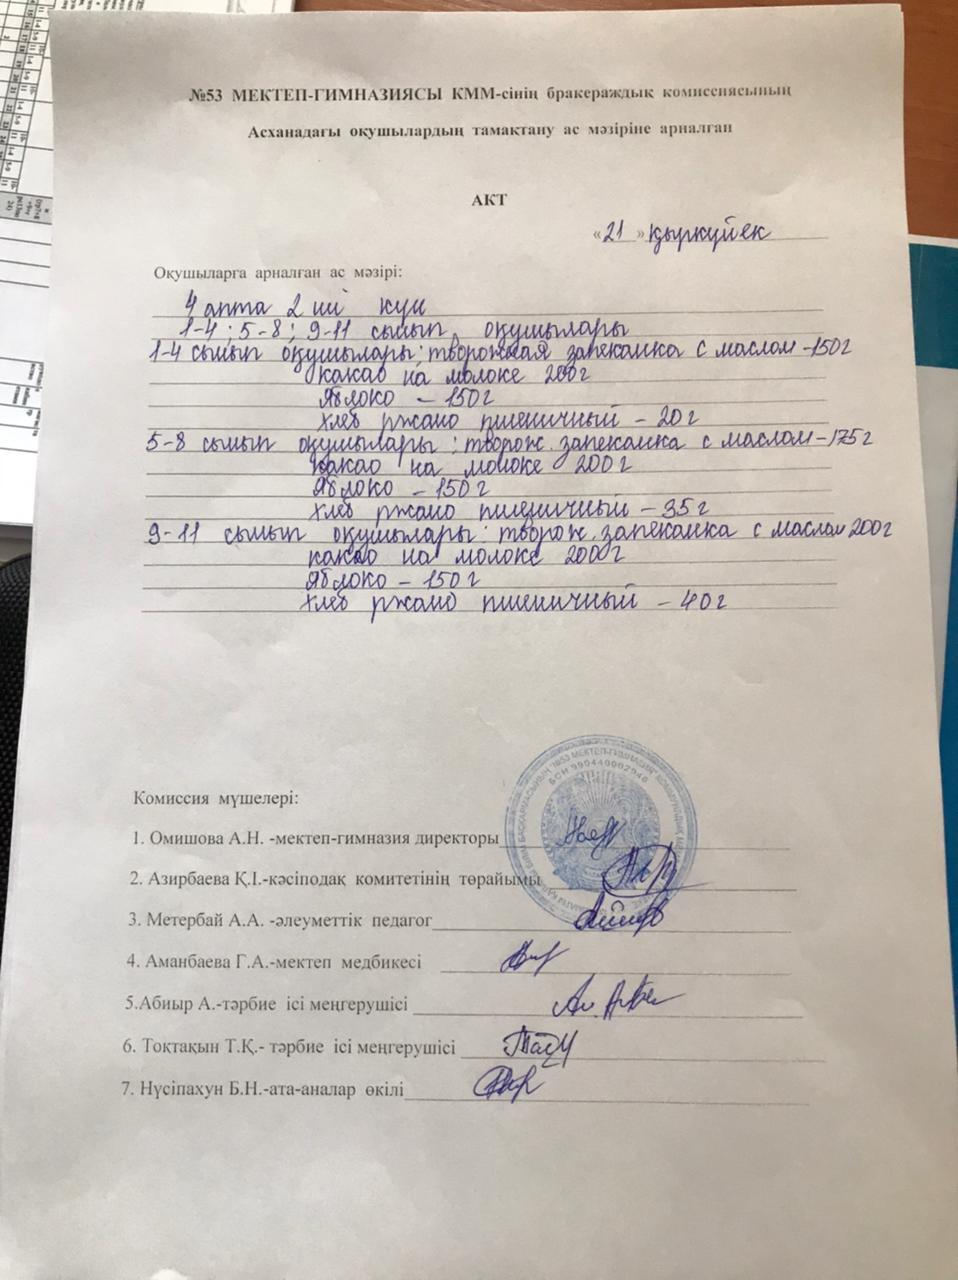 №53 МЕКТЕП-ГИМНАЗИЯСЫ КММ-сінің бракераждық комиссиясының
Асханадағы оқушылардың тамақтану ас мәзіріне арналған
АКТ
«21» қыркүйек
Оқушыларға арналған ас мәзірі:
4 апта 2 ші күн
1-4; 5-8; 9-11 сынып оқушылары
1-4 сынып оқушылары: творожная запеканка с маслом - 150г
какао на молоке 200г
яблоко - 150г
хлеб ржано пшеничный - 20г
5-8 сынып оқушылары: творож. запеканка с маслом - 175г
какао на молоке 200г
яблоко - 150г
хлеб ржано пшеничный - 35г
9-11 сынып оқушылары: творож. запеканка с маслом 200г
какао на молоке 200г
яблоко - 150г
хлеб ржано пшеничный - 40г
"№53 МЕКТЕП-ГИМНАЗИЯ" КОММУНАЛДЫҚ
БСН 990440002946
Комиссия мүшелері:
1. Омишова А.Н. -мектеп-гимназия директоры
2. Азирбаева Қ.І.-кәсіподақ комитетінің төрайымы
3. Метербай А.А. -әлеуметтік педагог
4. Аманбаева Г.А.-мектеп медбикесі
5.Абиыр А.-тәрбие ісі меңгерушісі
6. Тоқтақын Т.Қ.- тәрбие ісі меңгерушісі
7. Нүсіпахун Б.Н.-ата-аналар өкілі